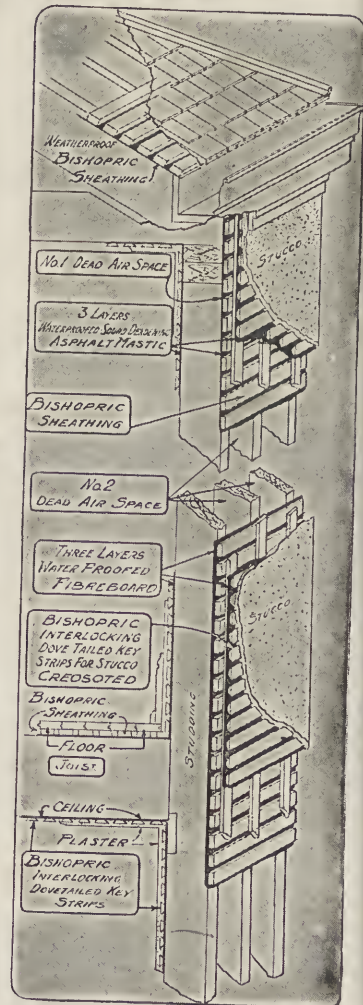 WEATHERPROOF
BISHOPRIC
SHEATHING
No.1 DEAD AIR SPACE
STUCCO
3 LAYERS
WATERPROOFED SOUND DEADENING
ASPHALT MASTIC
BISHOPRIC
SHEATHING
No.2
DEAD AIR SPACE
THREE LAYERS
WATER PROOFED
FIBREBOARD
STUCCO
BISHOPRIC
INTERLOCKING
DOVE TAILED KEY
STRIPS FOR STUCCO
CREOSOTED
STUDDING
BISHOPRIC
SHEATHING
FLOOR
JOIST
CEILING
PLASTER
BISHOPRIC
INTERLOCKING
DOVETAILED KEY
STRIPS